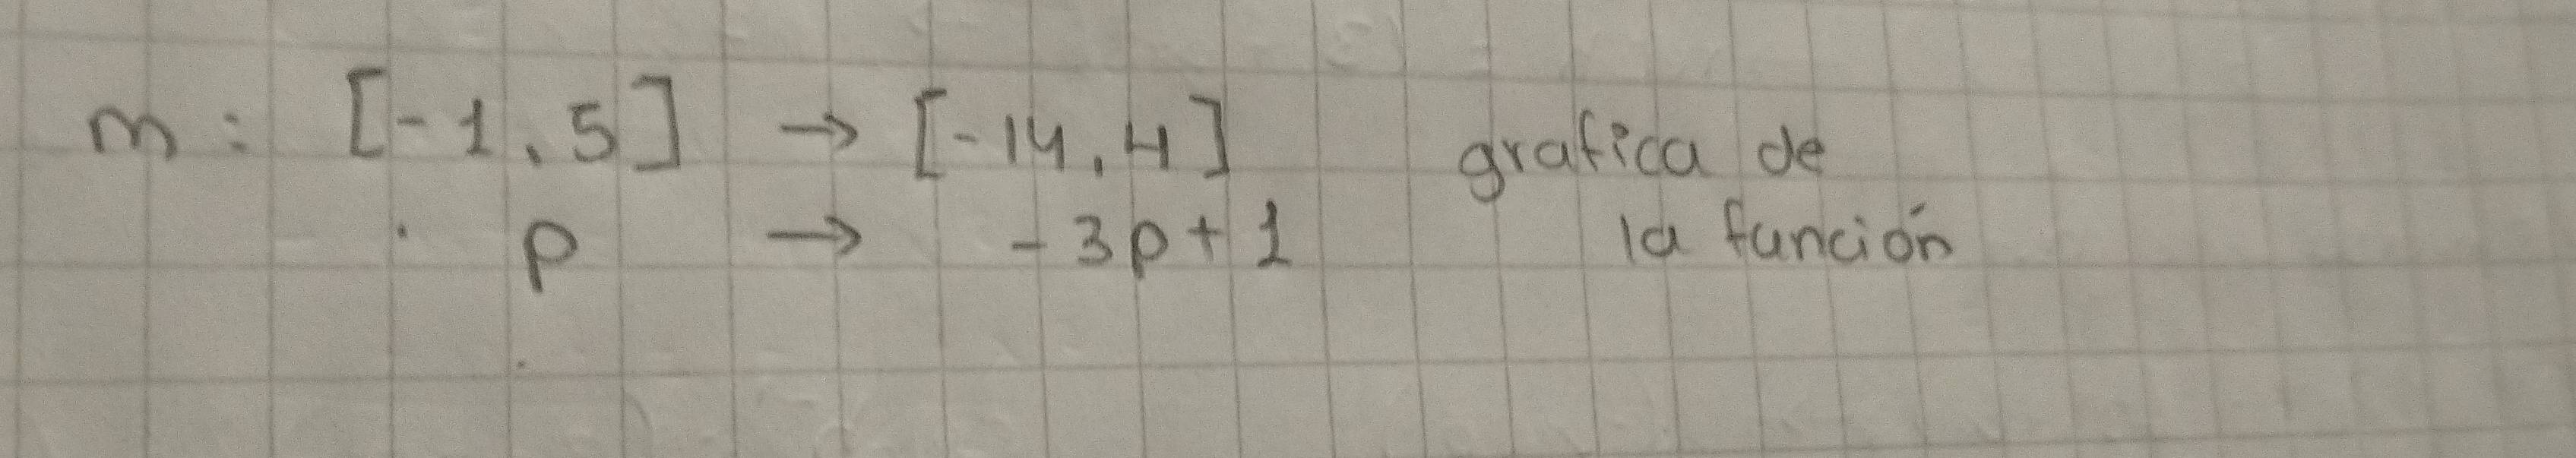 m: [-1, 5] → [-14, 4] grafica de
p → -3p+1 la función